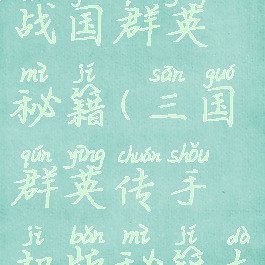 战国群英
mì jí sān guó
秘籍(三国
qún yīng chuán shǒu
群英传手
jī bǎn mì jí dà